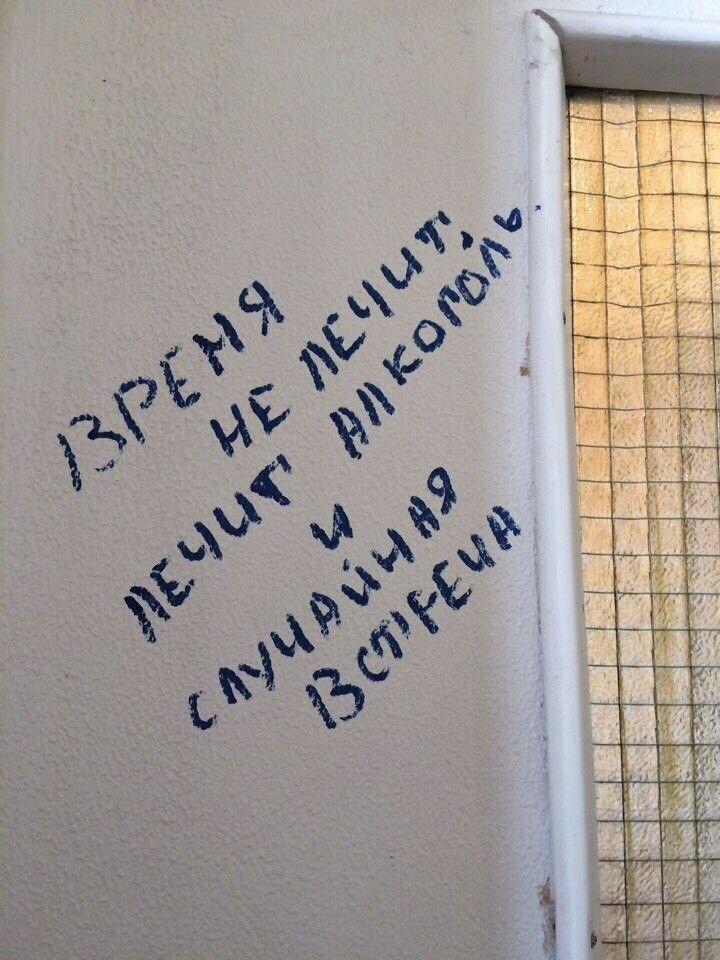 ВРЕМЯ
НЕ ЛЕЧИТ,
ЛЕЧИТ АЛКОГОЛЬ
И
СЛУЧАЙНАЯ
ВСТРЕЧА